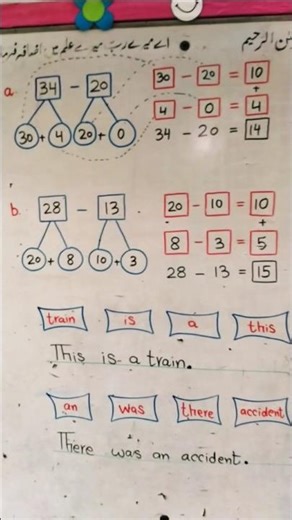 اے میرے رب میرے علم میں اضافہ فرما
a. 34 - 20
30 + 4 20 + 0
30 - 20 = 10
+
4 - 0 = 4
34 - 20 = 14
b. 28 - 13
20 + 8 10 + 3
20 - 10 = 10
+
8 - 3 = 5
28 - 13 = 15
train is a this
This is a train.
an was there accident
There was an accident.